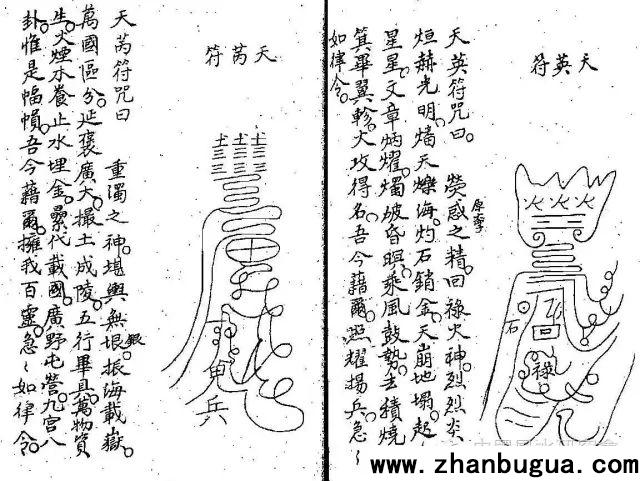 天英符
天英符咒曰。熒惑之精。回祿火神。烈烈炎
原字
烜赫光明。燔天爍海。灼石銷金。天崩地塌。起
星星。文章炳耀。燭破昏暝。乘風鼓勢。去積燒
箕畢翼軫。火攻得名。吾今藉爾。照耀揚兵。急〻
如律令。
火火火
石
祿
天芮符
天芮符咒曰 重濁之神。堪輿無垠。振海載嶽。
銀
萬國區分。延褒廣大。撮土成陵。五行畢具。萬物資
生。火煙木養。止水埋金。纍代載國。廣野屯營。九宮八
卦。惟是幅幀。吾今藉爾。擁我百靈。急〻如律令。
兵
www.zhanbugua.com